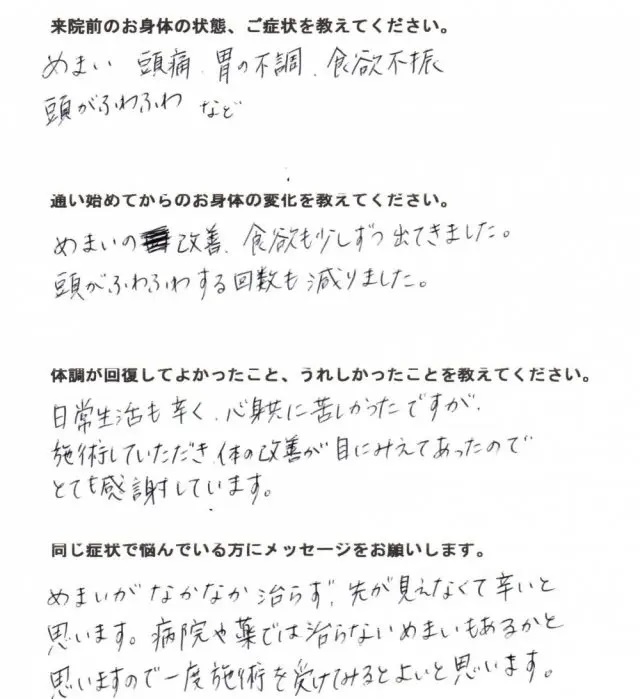 来院前のお身体の状態、ご症状を教えてください。
めまい 頭痛、胃の不調、食欲不振
頭がふわふわ など
通い始めてからのお身体の変化を教えてください。
めまいの改善、食欲も少しずつ出てきました。
頭がふわふわする回数も減りました。
体調が回復してよかったこと、うれしかったことを教えてください。
日常生活も辛く、心身共に苦しかったですが、
施術していただき、体の改善が目にみえてあったので
とても感謝しています。
同じ症状で悩んでいる方にメッセージをお願いします。
めまいがなかなか治らず、先が見えなくて辛いと
思います。病院や薬では治らないめまいもあるかと
思いますので一度施術を受けてみるとよいと思います。